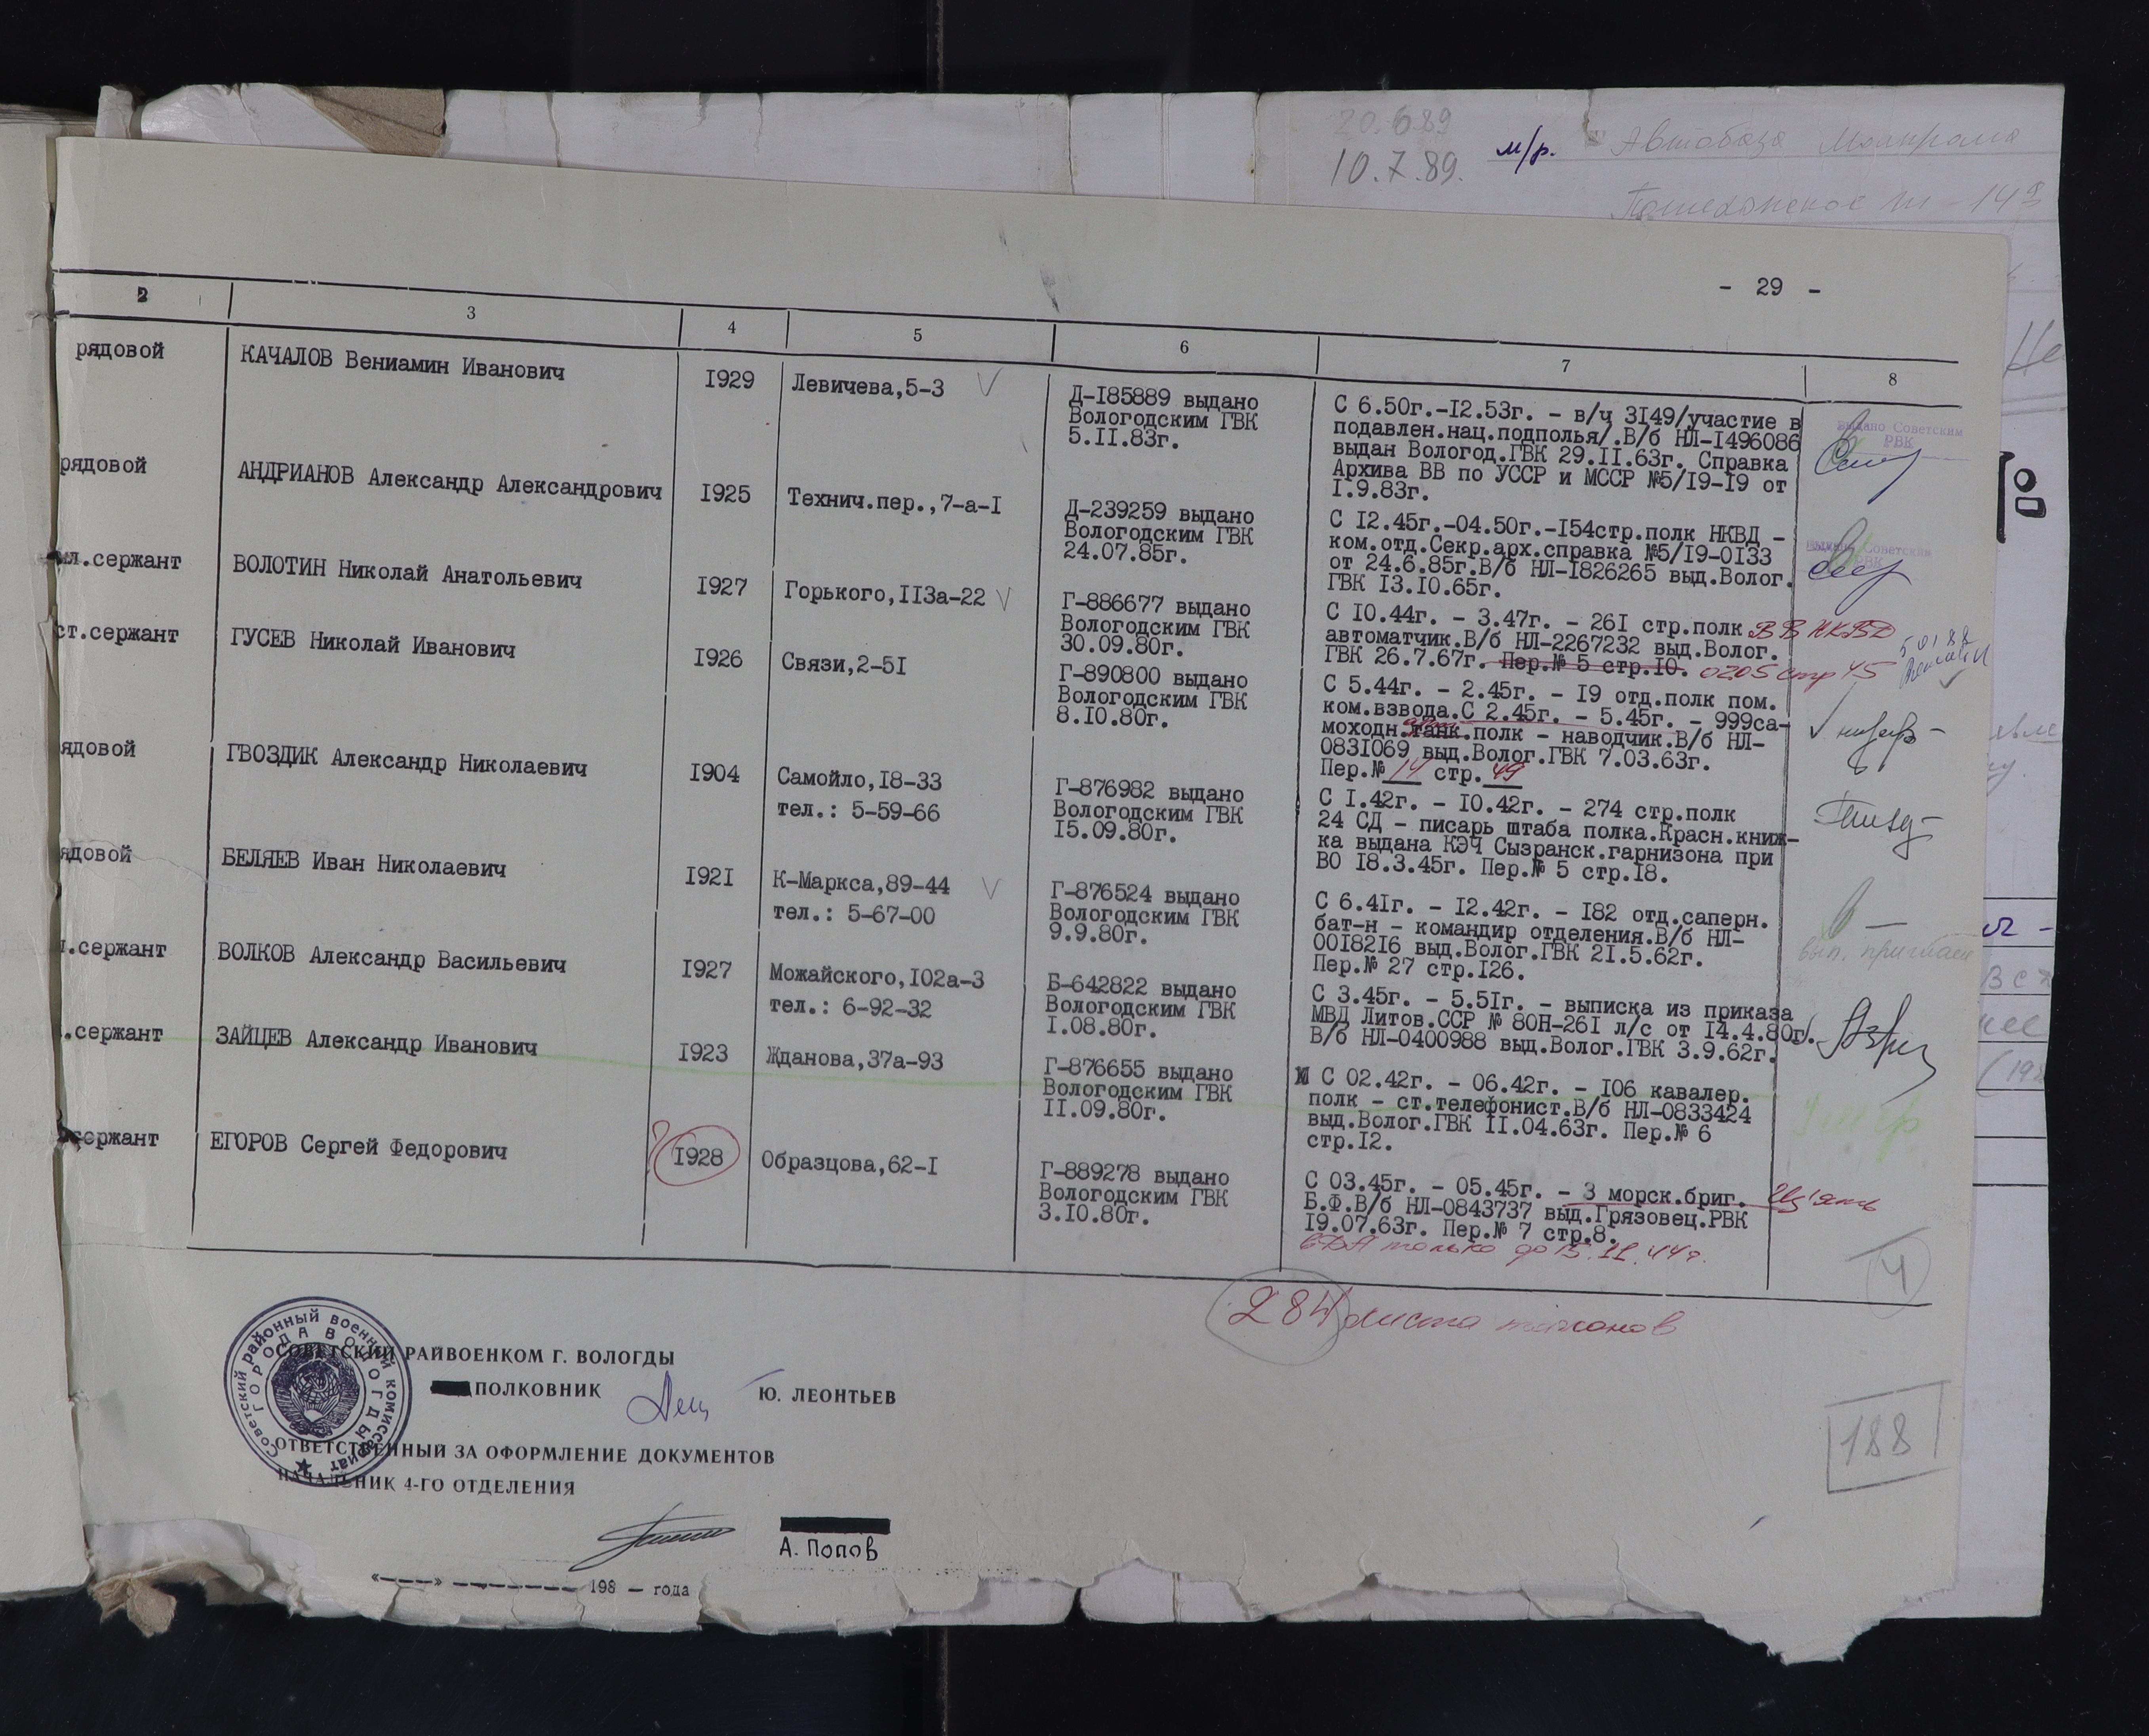 20.6.89
10.7.89. м/р. Автобаза
- 29 -
2 3 4 5 6 7 8
рядовой КАЧАЛОВ Вениамин Иванович I929 Левичева,5-3
Д-I85889 выдано
Вологодским ГВК
5.II.83г.
С 6.50г.-I2.53г. - в/ч 3I49/участие в
подавлен.нац.подполья/.В/б НЛ-I496086
выдан Вологод.ГВК 29.II.63г. Справка
Архива ВВ по УССР и МССР №5/I9-I9 от
I.9.83г.
Выдано Советским
РВК
рядовой АНДРИАНОВ Александр Александрович I925 Технич.пер.,7-а-I
Д-239259 выдано
Вологодским ГВК
24.07.85г.
С I2.45г.-04.50г.-I54стр.полк НКВД -
ком.отд.Секр.арх.справка №5/I9-0I33
от 24.6.85г.В/б НЛ-I826265 выд.Волог.
ГВК I3.I0.65г.
Выдано Советским
РВК
мл.сержант ВОЛОТИН Николай Анатольевич I927 Горького,II3а-22
Г-886677 выдано
Вологодским ГВК
30.09.80г.
С I0.44г. - 3.47г. - 26I стр.полк ВВ НКВД
автоматчик.В/б НЛ-2267232 выд.Волог.
ГВК 26.7.67г. Пер.№ 5 стр.I0. 0205 стр 45
ст.сержант ГУСЕВ Николай Иванович I926 Связи,2-5I
Г-890800 выдано
Вологодским ГВК
8.I0.80г.
С 5.44г. - 2.45г. - I9 отд.полк пом.
ком.взвода.С 2.45г. - 5.45г. - 999са-
моходн.танк.полк - наводчик.В/б НЛ-
083I069 выд.Волог.ГВК 7.03.63г.
Пер.№ 14 стр. 49
ядовой ГВОЗДИК Александр Николаевич I904 Самойло,I8-33
тел.: 5-59-66
Г-876982 выдано
Вологодским ГВК
I5.09.80г.
С I.42г. - I0.42г. - 274 стр.полк
24 СД - писарь штаба полка.Красн.книж-
ка выдана КЭЧ Сызранск.гарнизона при
ВО I8.3.45г. Пер.№ 5 стр.I8.
ядовой БЕЛЯЕВ Иван Николаевич I92I К-Маркса,89-44
тел.: 5-67-00
Г-876524 выдано
Вологодским ГВК
9.9.80г.
С 6.4Iг. - I2.42г. - I82 отд.саперн.
бат-н - командир отделения.В/б НЛ-
00I82I6 выд.Волог.ГВК 2I.5.62г.
Пер.№ 27 стр.I26.
.сержант ВОЛКОВ Александр Васильевич I927 Можайского,I02а-3
тел.: 6-92-32
Б-642822 выдано
Вологодским ГВК
I.08.80г.
С 3.45г. - 5.5Iг. - выписка из приказа
МВД Литов.ССР № 80Н-26I л/с от I4.4.80г.
В/б НЛ-0400988 выд.Волог.ГВК 3.9.62г.
.сержант ЗАЙЦЕВ Александр Иванович I923 Жданова,37а-93
Г-876655 выдано
Вологодским ГВК
II.09.80г.
С 02.42г. - 06.42г. - I06 кавалер.
полк - ст.телефонист.В/б НЛ-0833424
выд.Волог.ГВК II.04.63г. Пер.№ 6
стр.I2.
сержант ЕГОРОВ Сергей Федорович ? I928 Образцова,62-I
Г-889278 выдано
Вологодским ГВК
3.I0.80г.
С 03.45г. - 05.45г. - 3 морск.бриг. Изъять
Б.Ф.В/б НЛ-0843737 выд.Грязовец.РВК
I9.07.63г. Пер.№ 7 стр.8.
только до 15.11.44г.
4
284 листа талонов
Советский районный военный комиссариат
ГОРОДА ВОЛОГДЫ
СОВЕТСКИЙ РАЙВОЕНКОМ Г. ВОЛОГДЫ
ПОЛКОВНИК Ю. ЛЕОНТЬЕВ
ОТВЕТСТВЕННЫЙ ЗА ОФОРМЛЕНИЕ ДОКУМЕНТОВ
НАЧАЛЬНИК 4-ГО ОТДЕЛЕНИЯ
А. Попов
«----» -------- 198 — года
188